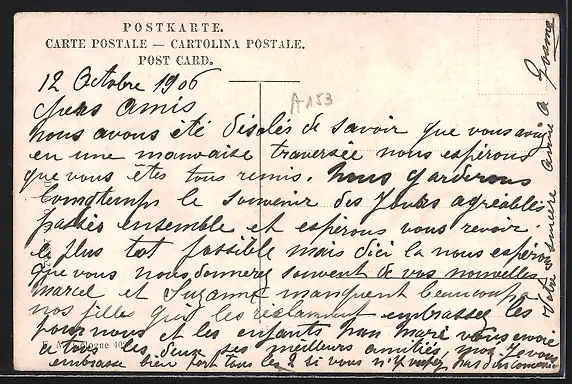 POSTKARTE.
CARTE POSTALE — CARTOLINA POSTALE.
POST CARD.
12 Octobre 1906
A153
chers amis
nous avons été désolés de savoir que vous aviez
eu une mauvaise traversée nous espérons
que vous êtes tous remis. nous garderons
longtemps le souvenir des jours agréables
passés ensemble et espérons vous revoir
le plus tot possible mais dici la nous espérons
que vous nous donnerez souvent de vos nouvelles
marcel et Suzanne manquent beaucoup
nos filles les réclament embrassez les
pour nous et les enfants mon mari vous envoie
a tous les deux ses meilleurs amitiés moi je vous
embrasse bien fort tous si vous n'y voyez pas
Votre sincère amie